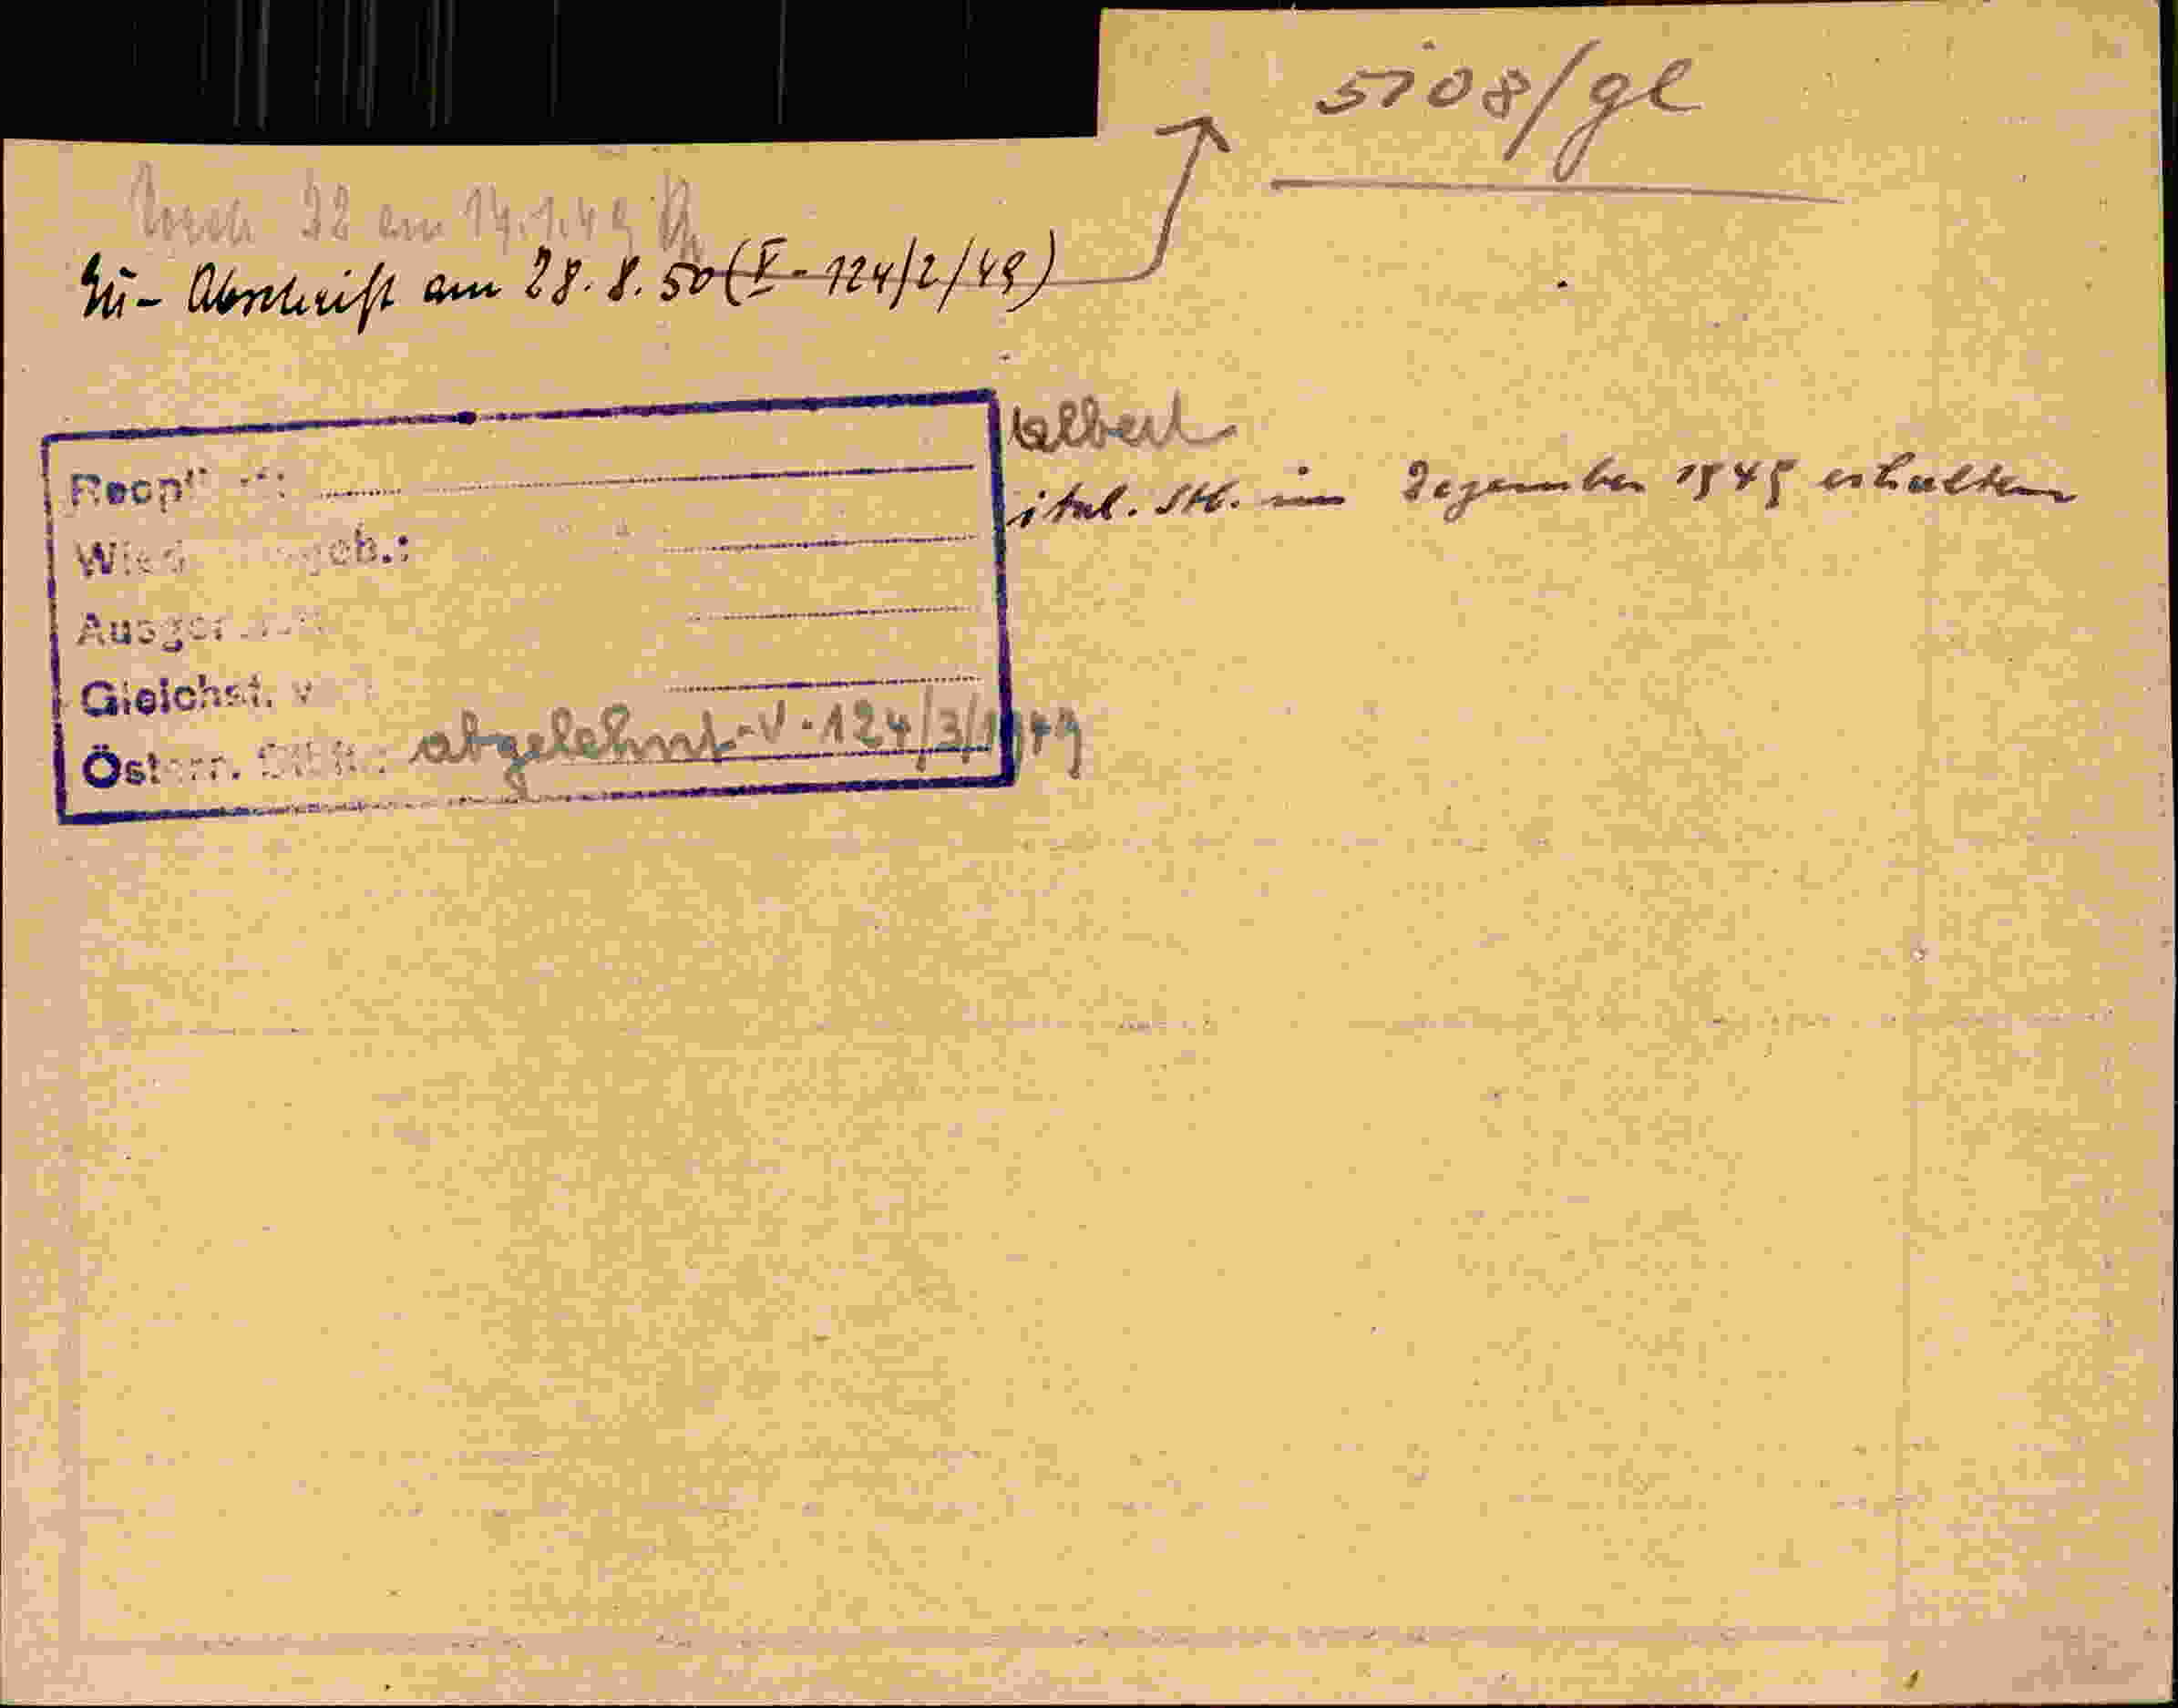 5708/gl
22 am 14.1.49
Zü- Abschrift am 28.8.50 (V - 124/2/49)
Albert
ital. Stb. im Dezember 1949 erhalten
geb.:
Gleichst. v
Österr. abgelehnt - V - 124/3/1949